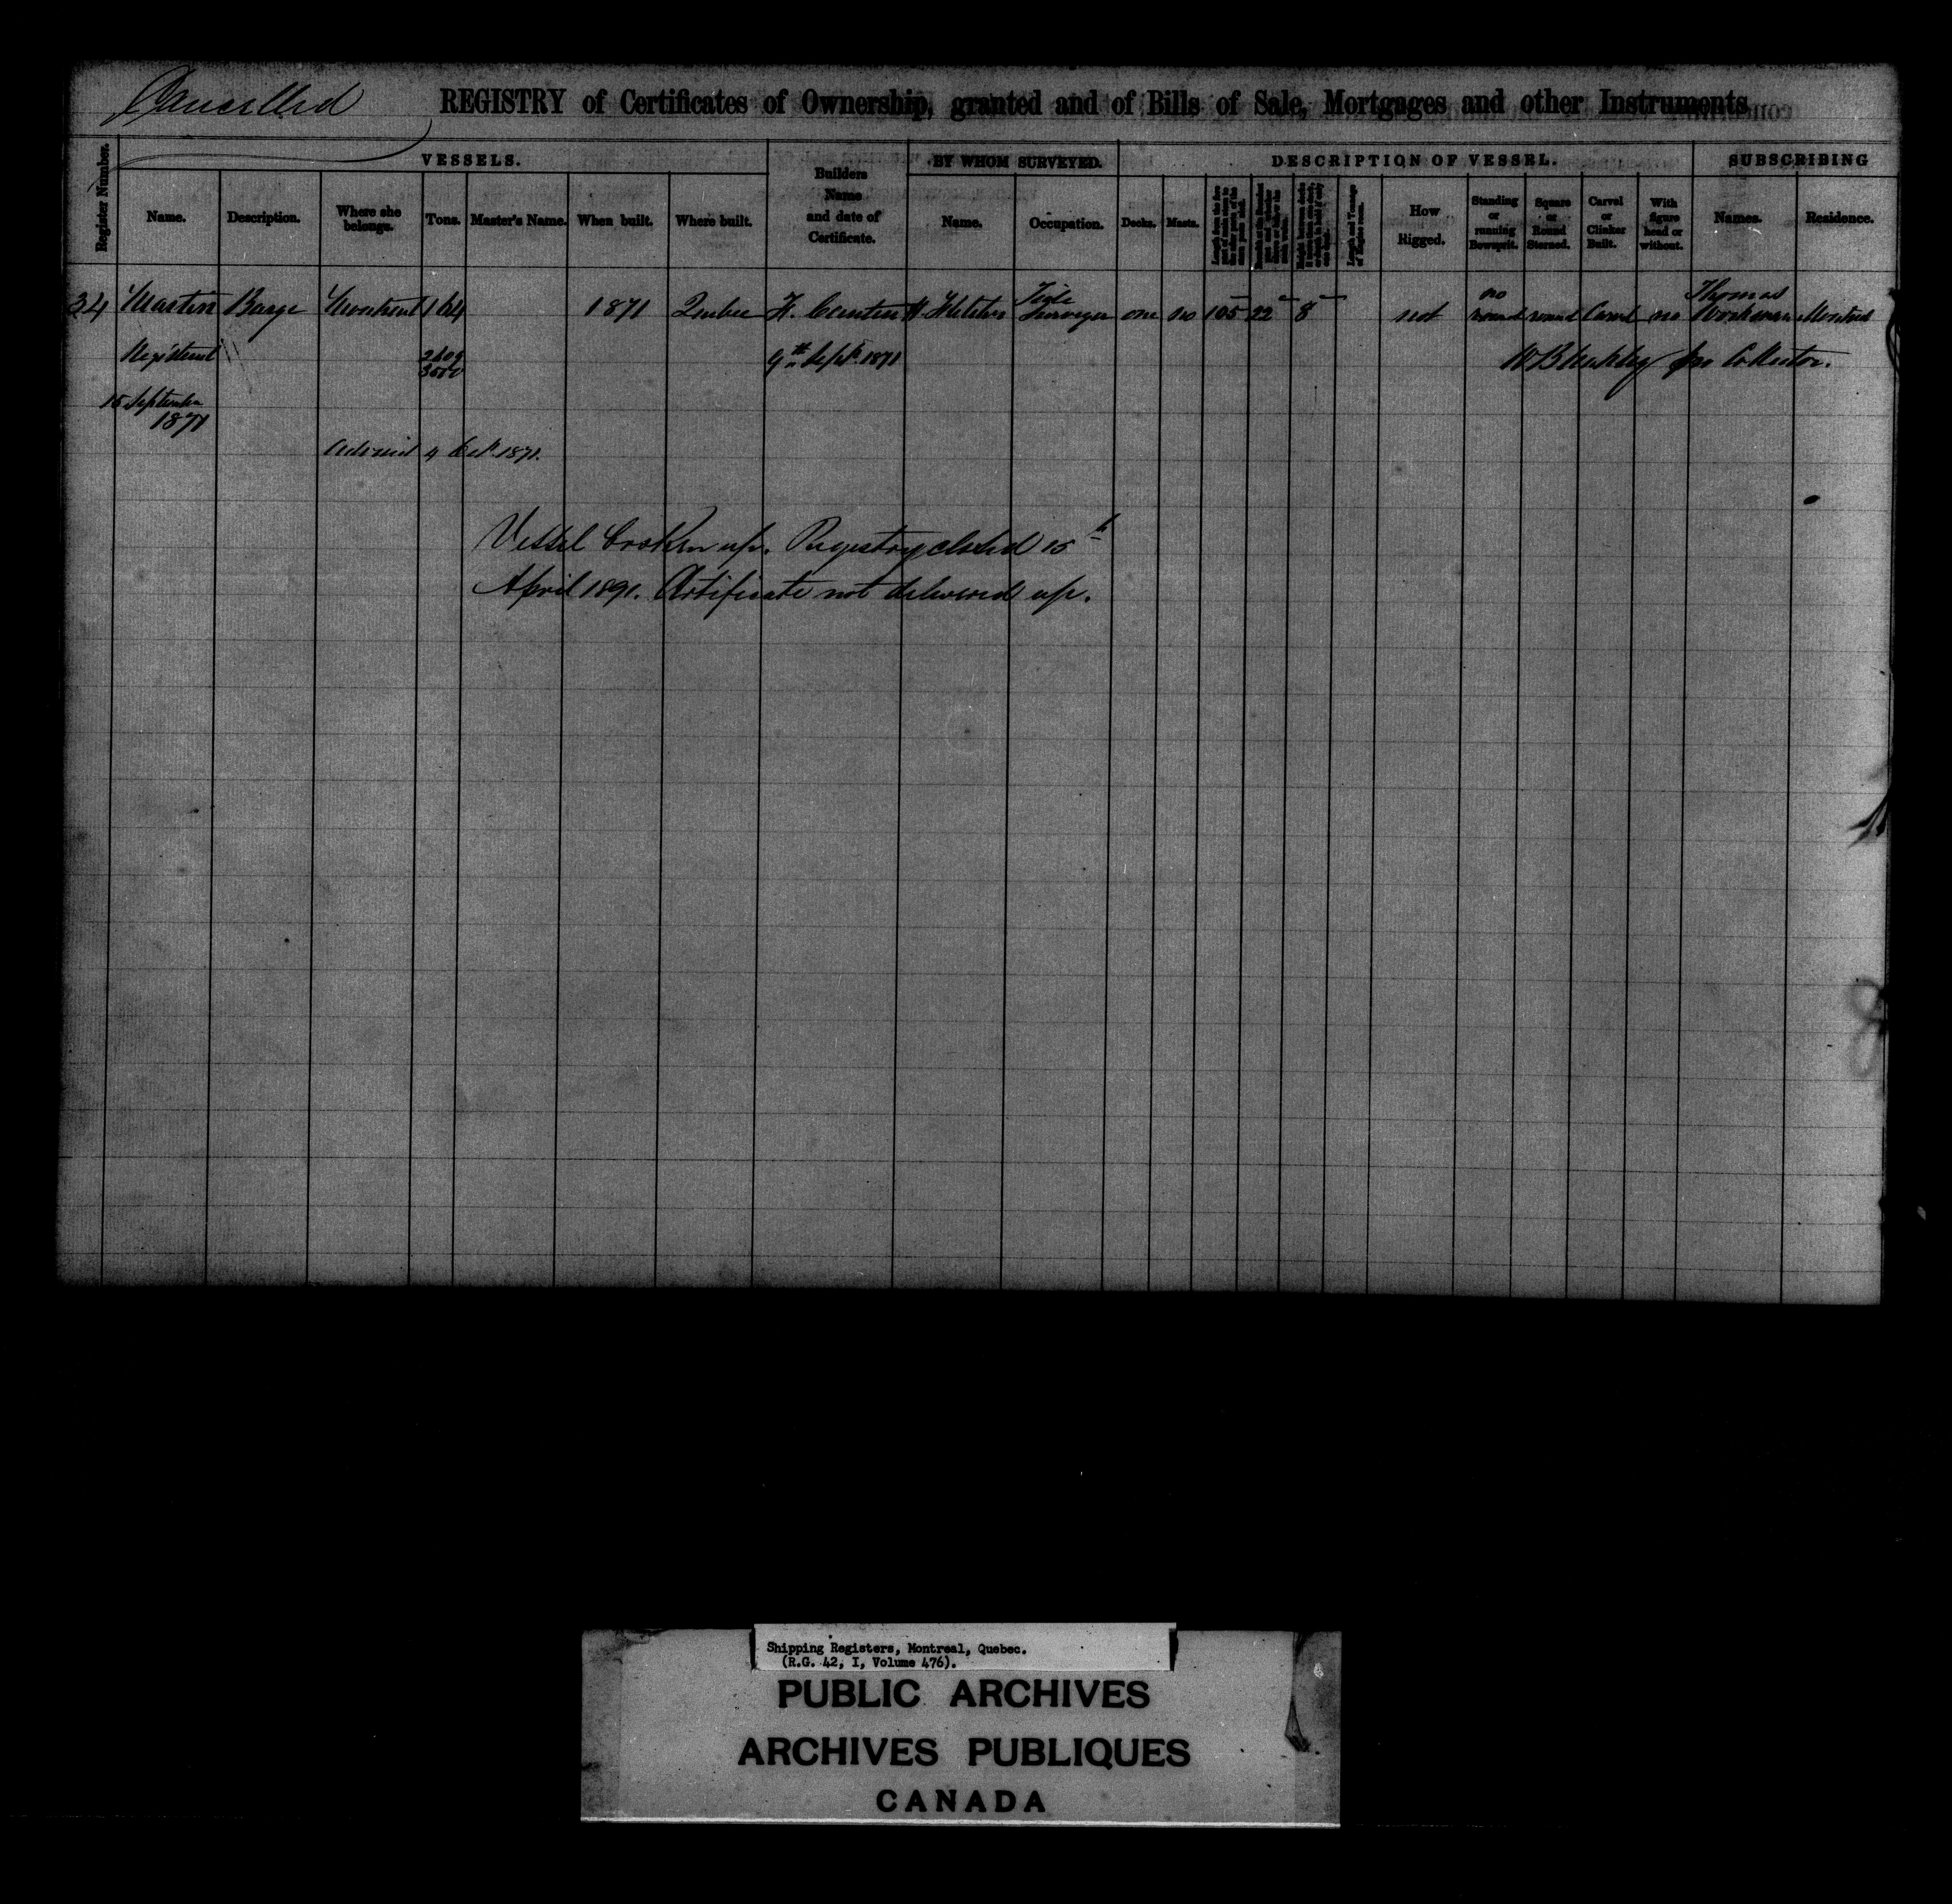 Cancelled
REGISTRY of Certificates of Ownership, granted and of Bills of Sale, Mortgages and other Instruments
Register Number.
VESSELS.
Builders Name and date of Certificate.
BY WHOM SURVEYED.
DESCRIPTION OF VESSEL.
SUBSCRIBING
Name. Description. Where she belongs. Tons. Master's Name. When built. Where built. Name. Occupation. Decks. Masts. How Rigged. Standing or running Bowsprit. Square or Round Sterned. Carvel or Clinker Built. With figure head or without. Names. Residence.
34 Martin Barge Montreal 164 1871 Quebec H. Fletcher Surveyor one no 105 22 8 not no round round Carvel no Thomas Workman Montreal
Registered 9th Sept. 1871 Collector.
15 September
1871
4 Oct. 1871.
Vessel broken up. Registry closed 15th
April 1891. Certificate not delivered up.
Shipping Registers, Montreal, Quebec.
(R.G. 42, I, Volume 476).
PUBLIC ARCHIVES
ARCHIVES PUBLIQUES
CANADA